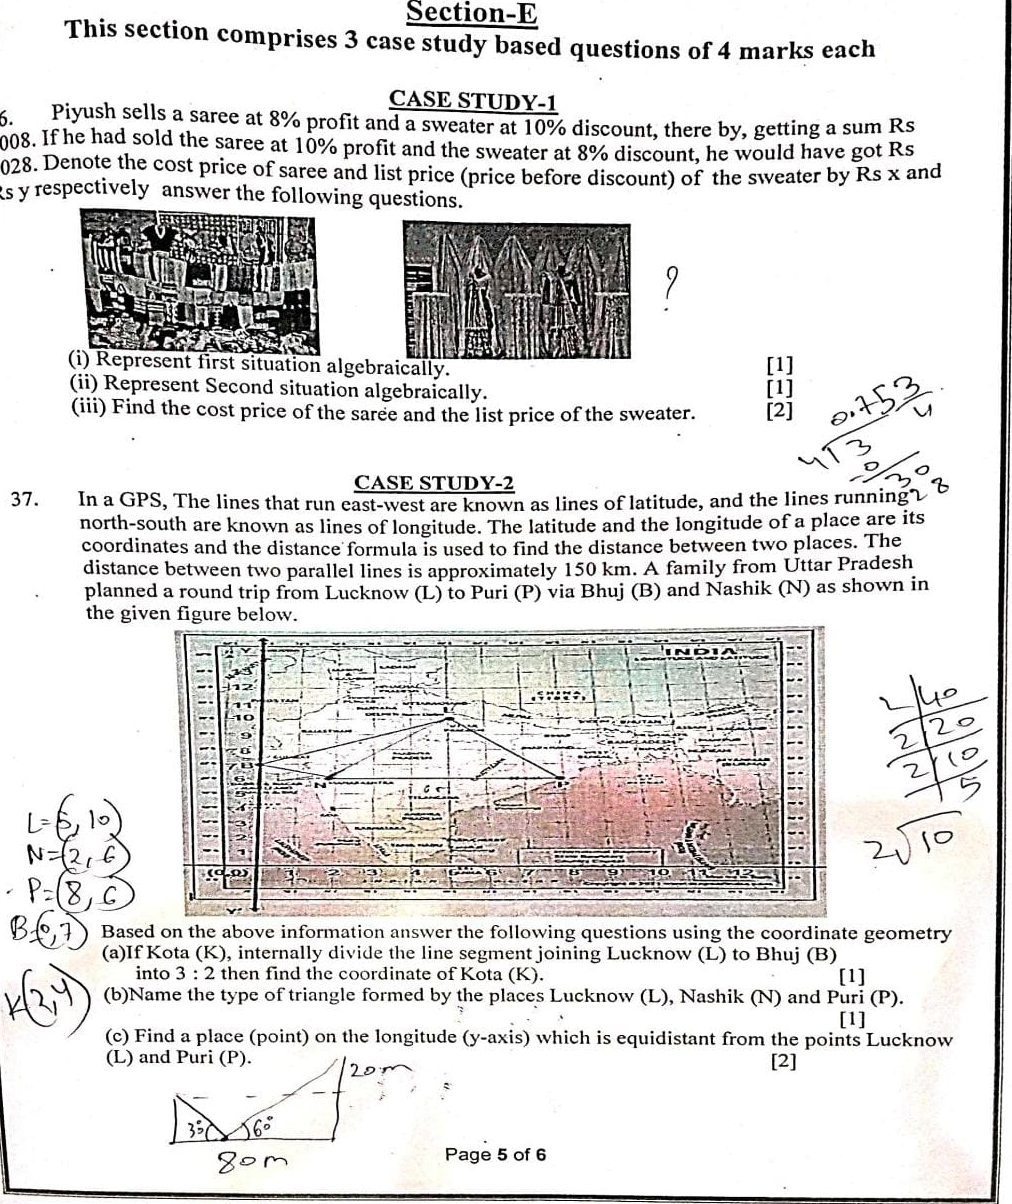 Section-E
This section comprises 3 case study based questions of 4 marks each
CASE STUDY-1
6. Piyush sells a saree at 8% profit and a sweater at 10% discount, there by, getting a sum Rs
008. If he had sold the saree at 10% profit and the sweater at 8% discount, he would have got Rs
028. Denote the cost price of saree and list price (price before discount) of the sweater by Rs x and
Rs y respectively answer the following questions.
?
(i) Represent first situation algebraically. [1]
(ii) Represent Second situation algebraically. [1]
(iii) Find the cost price of the saree and the list price of the sweater. [2]
0.75
3/4
4 3
0
30
28
CASE STUDY-2
37. In a GPS, The lines that run east-west are known as lines of latitude, and the lines running
north-south are known as lines of longitude. The latitude and the longitude of a place are its
coordinates and the distance formula is used to find the distance between two places. The
distance between two parallel lines is approximately 150 km. A family from Uttar Pradesh
planned a round trip from Lucknow (L) to Puri (P) via Bhuj (B) and Nashik (N) as shown in
the given figure below.
INDIA
Y
12
11
10
9
8
(0,0) 2 3 4 5 6 7 8 9 10 11 12
2 40
2 20
2 10
5
2√10
L=(5, 10)
N=(2, 6)
P=(8, 6)
B(0, 7)
K(3, 4)
Based on the above information answer the following questions using the coordinate geometry
(a)If Kota (K), internally divide the line segment joining Lucknow (L) to Bhuj (B)
into 3 : 2 then find the coordinate of Kota (K). [1]
(b)Name the type of triangle formed by the places Lucknow (L), Nashik (N) and Puri (P).
[1]
(c) Find a place (point) on the longitude (y-axis) which is equidistant from the points Lucknow
(L) and Puri (P). [2]
20m
30° 60°
80m
Page 5 of 6